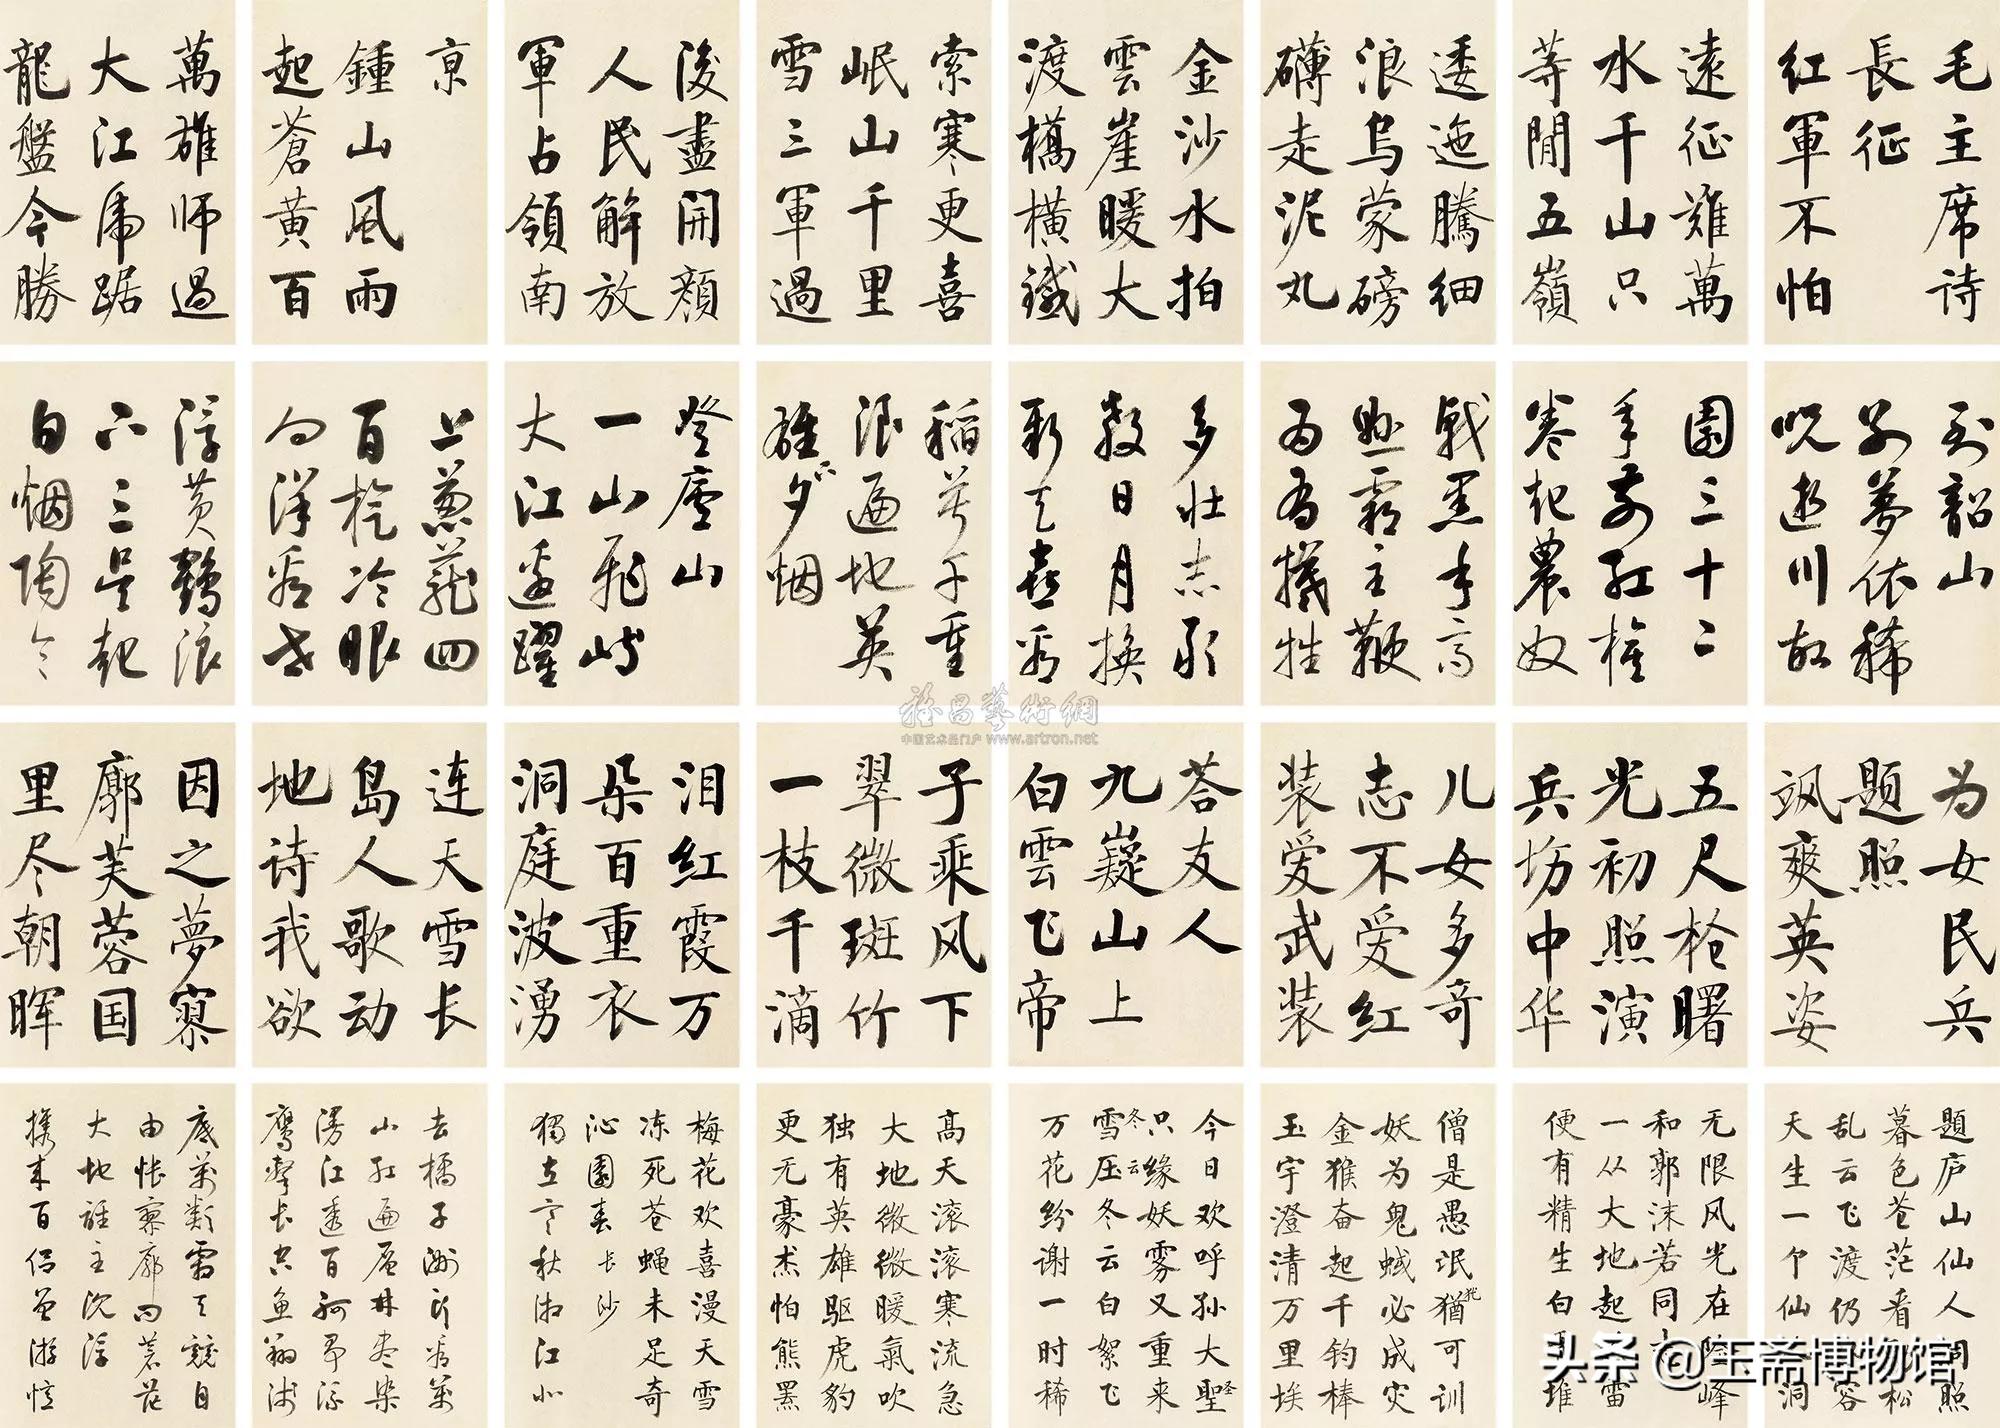 毛主席诗
長征
紅軍不怕
遠征難萬
水千山只
等閒五嶺
逶迤騰細
浪烏蒙磅
礴走泥丸
金沙水拍
雲崖暖大
渡橋橫鐵
索寒更喜
岷山千里
雪三軍過
後盡開顏
人民解放
軍占領南
京
鍾山風雨
起蒼黃百
萬雄師過
大江虎踞
龍盤今勝
到韶山
别夢依稀
咒逝川故
園三十二
年前紅旗
卷起農奴
戟黑手高
懸霸主鞭
为有犧牲
多壮志敢
教日月换
新天喜看
稻菽千重
浪遍地英
雄下夕烟
登廬山
一山飛峙
大江邊躍
上葱蘢四
百旋冷眼
向洋看世
浮黄鶴浪
下三吴起
白烟陶令
为女民兵
題照
飒爽英姿
五尺枪曙
光初照演
兵场中华
儿女多奇
志不爱红
装爱武装
荅友人
九嶷山上
白雲飞帝
子乘风下
翠微斑竹
一枝千滴
泪红霞万
朵百重衣
洞庭波湧
连天雪长
岛人歌动
地诗我欲
因之夢寥
廓芙蓉国
里尽朝晖
題庐山仙人洞照
暮色苍茫看松
乱云飞渡仍容
天生一个仙洞
无限风光在险峰
和郭沫若同
一从大地起雷
便有精生白堆
僧是愚氓猶可训
妖为鬼蜮必成灾
金猴奋起千钧棒
玉宇澄清万里埃
今日欢呼孙大聖
只缘妖雾又重来
冬云
雪压冬云白絮飞
万花纷谢一时稀
高天滚滚寒流急
大地微微暖氣吹
独有英雄驱虎豹
更无豪杰怕熊罴
梅花欢喜漫天雪
冻死苍蝇未足奇
沁園春长沙
獨立寒秋湘江北
去橘子洲头看萬
山红遍层林尽染
漫江透百舸争流
鹰擊长空鱼翔浅
底萬类霜天競自
由怅寥廓问苍茫
大地谁主沉浮
携来百侣曾游忆
雅昌藝術網
中国艺术品门户 www.artron.net
头条 @玉斋博物馆